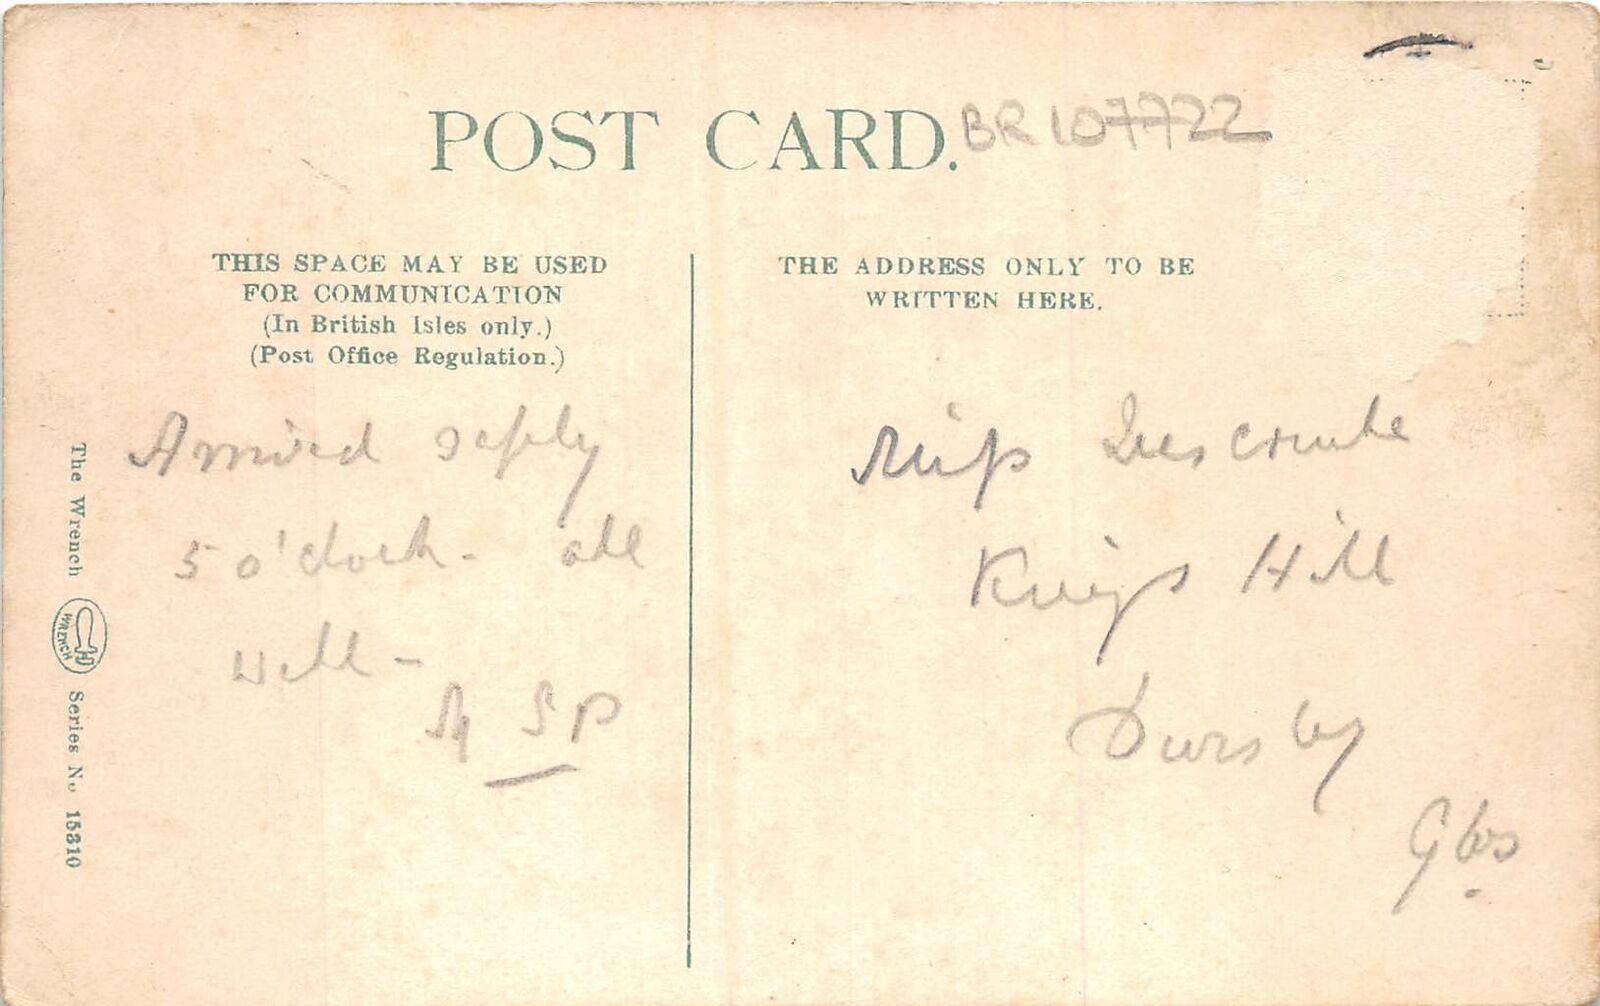 POST CARD.
BR 107722
THIS SPACE MAY BE USED
FOR COMMUNICATION
(In British Isles only.)
(Post Office Regulation.)
THE ADDRESS ONLY TO BE
WRITTEN HERE.
Arrived safely
5 o'clock - all
well -
SP
Miss
Kings Hill
Dursley
Glos
The Wrench
WRENCH
Series No 15310